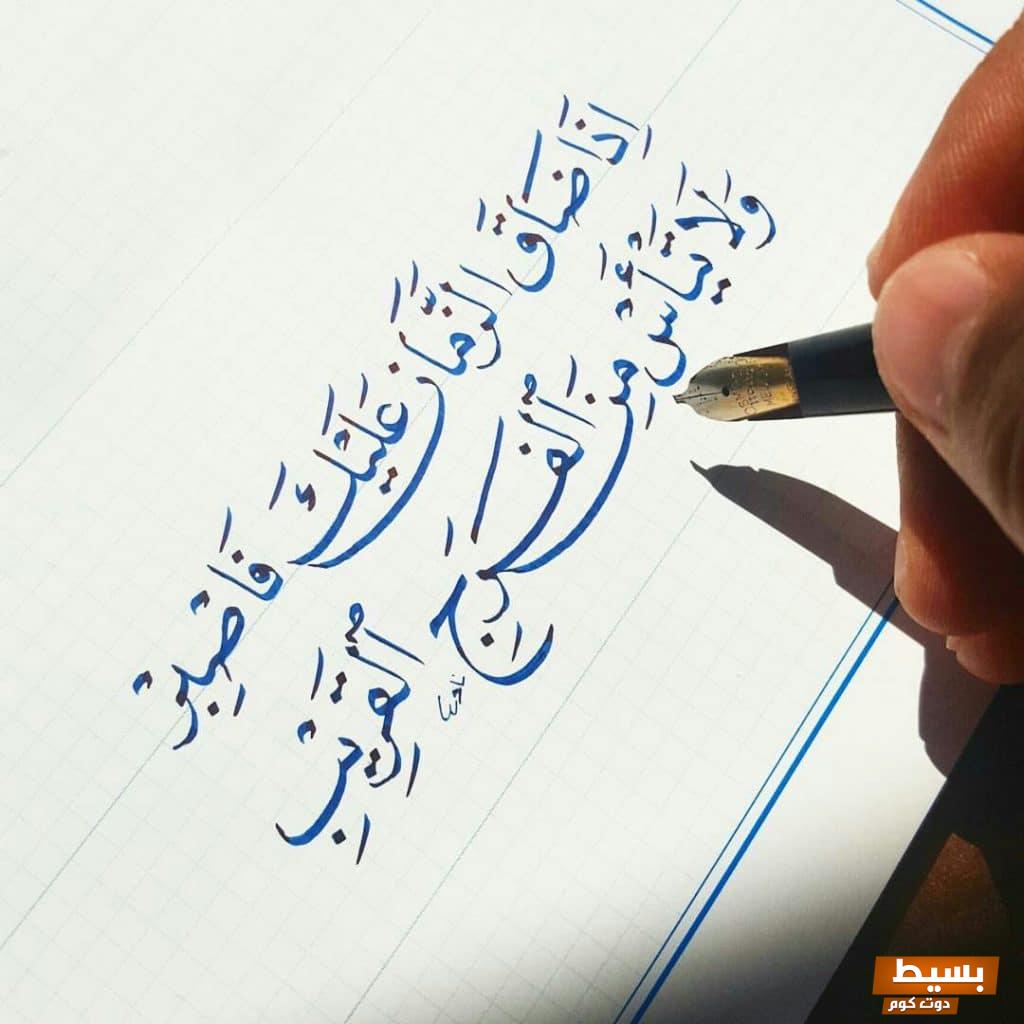 اِذَا ضَاقَ الزَّمَانُ عَلَيْكَ فَاصْبِرْ
وَلَا تَيْأَسْ مِنَ الْفَرَجِ الْقَرِيْبِ
بسيط
دوت كوم